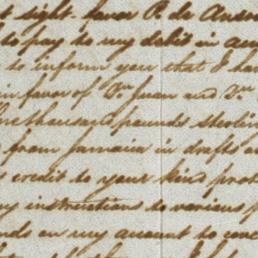 sight favor P. de
to pay to my debit in
to inform you that I ha
in favor of Dn Juan and Dn
thousand pounds sterling
from Jamaica in drafts
credit to your kind prot
my instructions to various p
on my account to